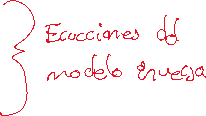 Ecucciones del
modelo inversa